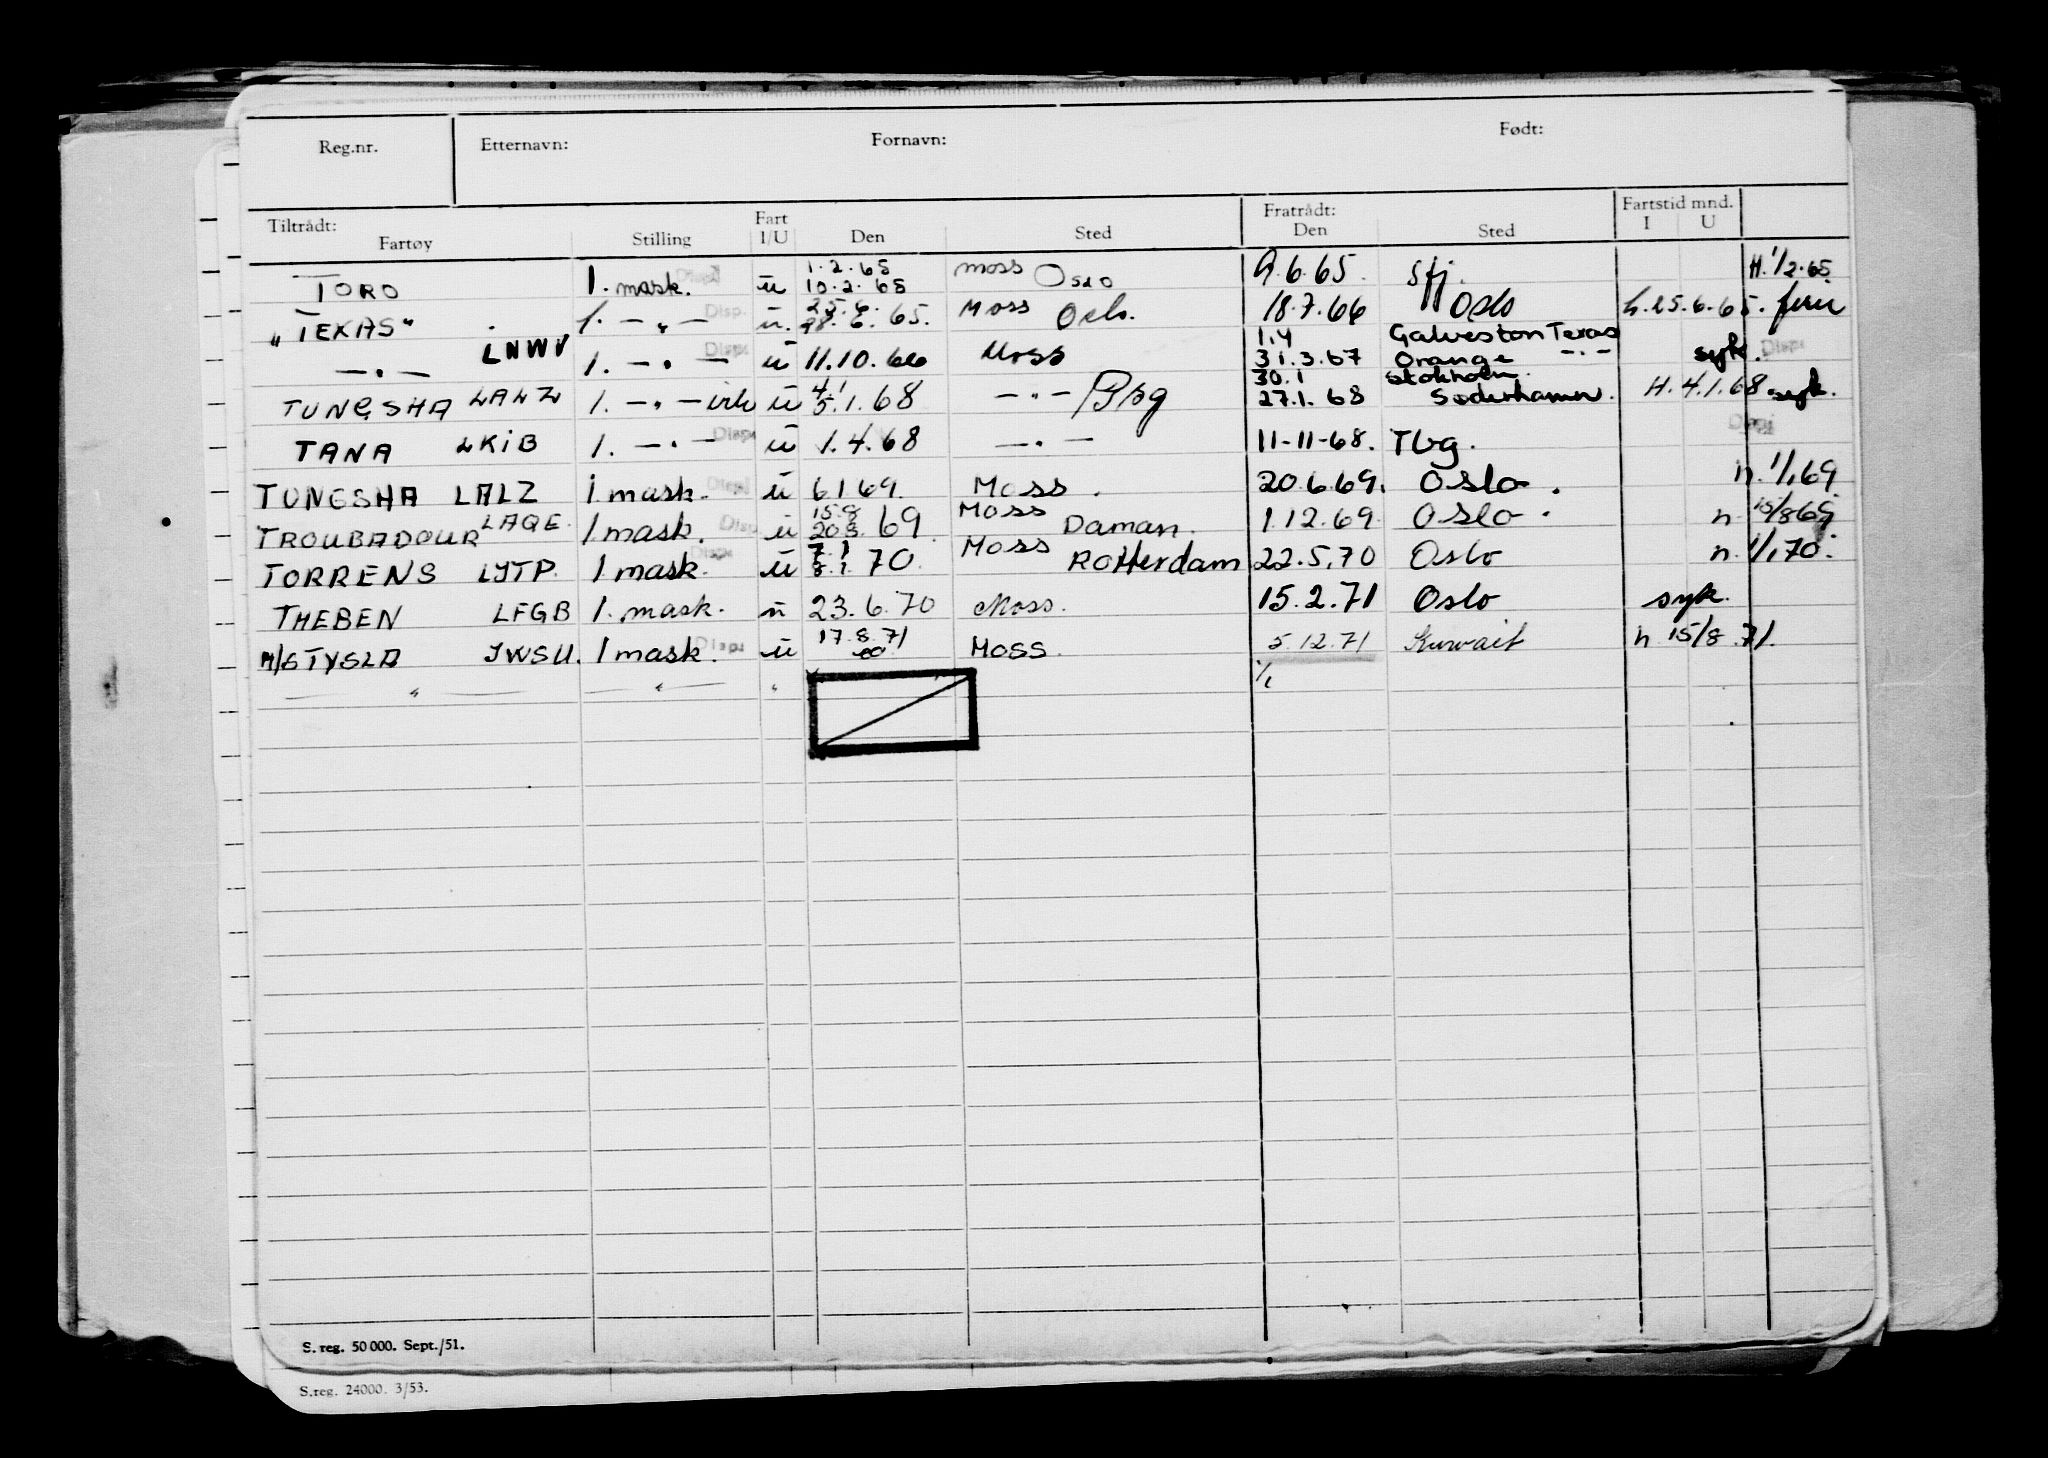 Reg.nr. Etternavn: Fornavn: Født:
Tiltrådt: Fartøy Stilling Fart I/U Den Sted Fratrådt: Den Sted Fartstid mnd. I U
TORO 1. mask. u 1.2.65 10.2.65 Moss Oslo 9.6.65. Sfj. H. 1/2.65
"TEXAS" 1. — " — u. 25.6. 28.6.65. Moss Oslo. 18.7.66 Oslo h. 25.6.65. ferie
— " — LNWV 1. — " — u 11.10.66 Moss 1.4 31.3.67 Galveston Texas Orange — " — syk.
TUNGSHA LALZ 1. — " — vik u 4.1 5.1.68 — " — Bbg 30.1 27.1.68 Stokholm. Søderhamn. H. 4.1.68 syk.
TANA LKIB 1. — " — u 1.4.68 — " — 11-11-68. Tbg.
TUNGSHA LALZ 1 mask. u 6.1.69. Moss. 20.6.69. Oslo. n. 1/1.69
TROUBADOUR LAQE. 1 mask. u 15.8 20.8.69. Moss Daman. 1.12.69. Oslo. n 15/8 69
TORRENS LJTP. 1 mask. u 7.1 8.1.70. Moss Rotterdam 22.5.70 Oslo n. 1/1.70.
THEBEN LFGB 1. mask. u 23.6.70 Moss. 15.2.71 Oslo syk.
M/S TYSLA JWSU. 1 mask. u 17.8.71 Moss. 5.12.71 Kuwait h 15/8.71.
— " — — " — " 1/1
S. reg. 50 000. Sept./51.
S.reg. 24000. 3/53.